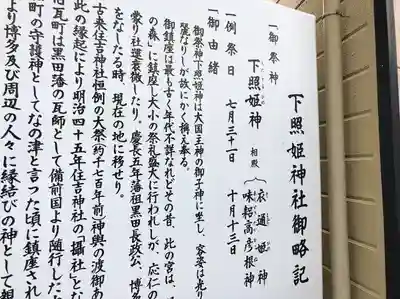 下照姫神社御略記
一御祭神
下照姫神
相殿
衣通姫神
味耜高彦根神
一例祭日 七月三十一日 十月十三日
一御由緒
御祭神下照姫神は大国主神の御子神に坐し、容姿は光り
麗なりしが故にかく稱え奉る。
御鎮座は最も古く年代不詳なれどその昔、此の宮は、
の森」に鎮座し大小の祭礼盛大に行われしが、応仁の
衆り社運衰微したり。慶長五年藩祖黒田長政公、博多
をなしたる時、現在の地に移せり。
古来住吉神社恒例の大祭(約千七百年前)神輿の渡御あ
此の縁起により明治四十五年住吉神社の「攝社」とな
旧瓦町は黒田藩の瓦師として備前国より随行した
町の守護神としてなの津と言った頃に鎮座され
より博多及び周辺の人々に縁結びの神として親